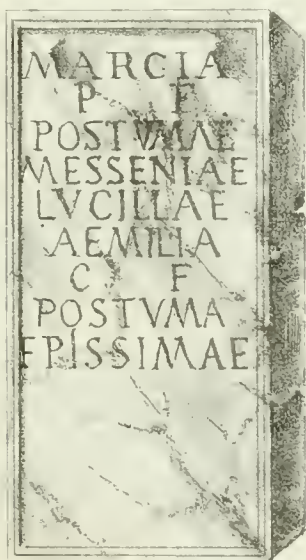 MARCIA
P F
POSTVMAE
MESSENIAE
LVCILLAE
AEMILIA
C F
POSTVMA
FPISSIMAE